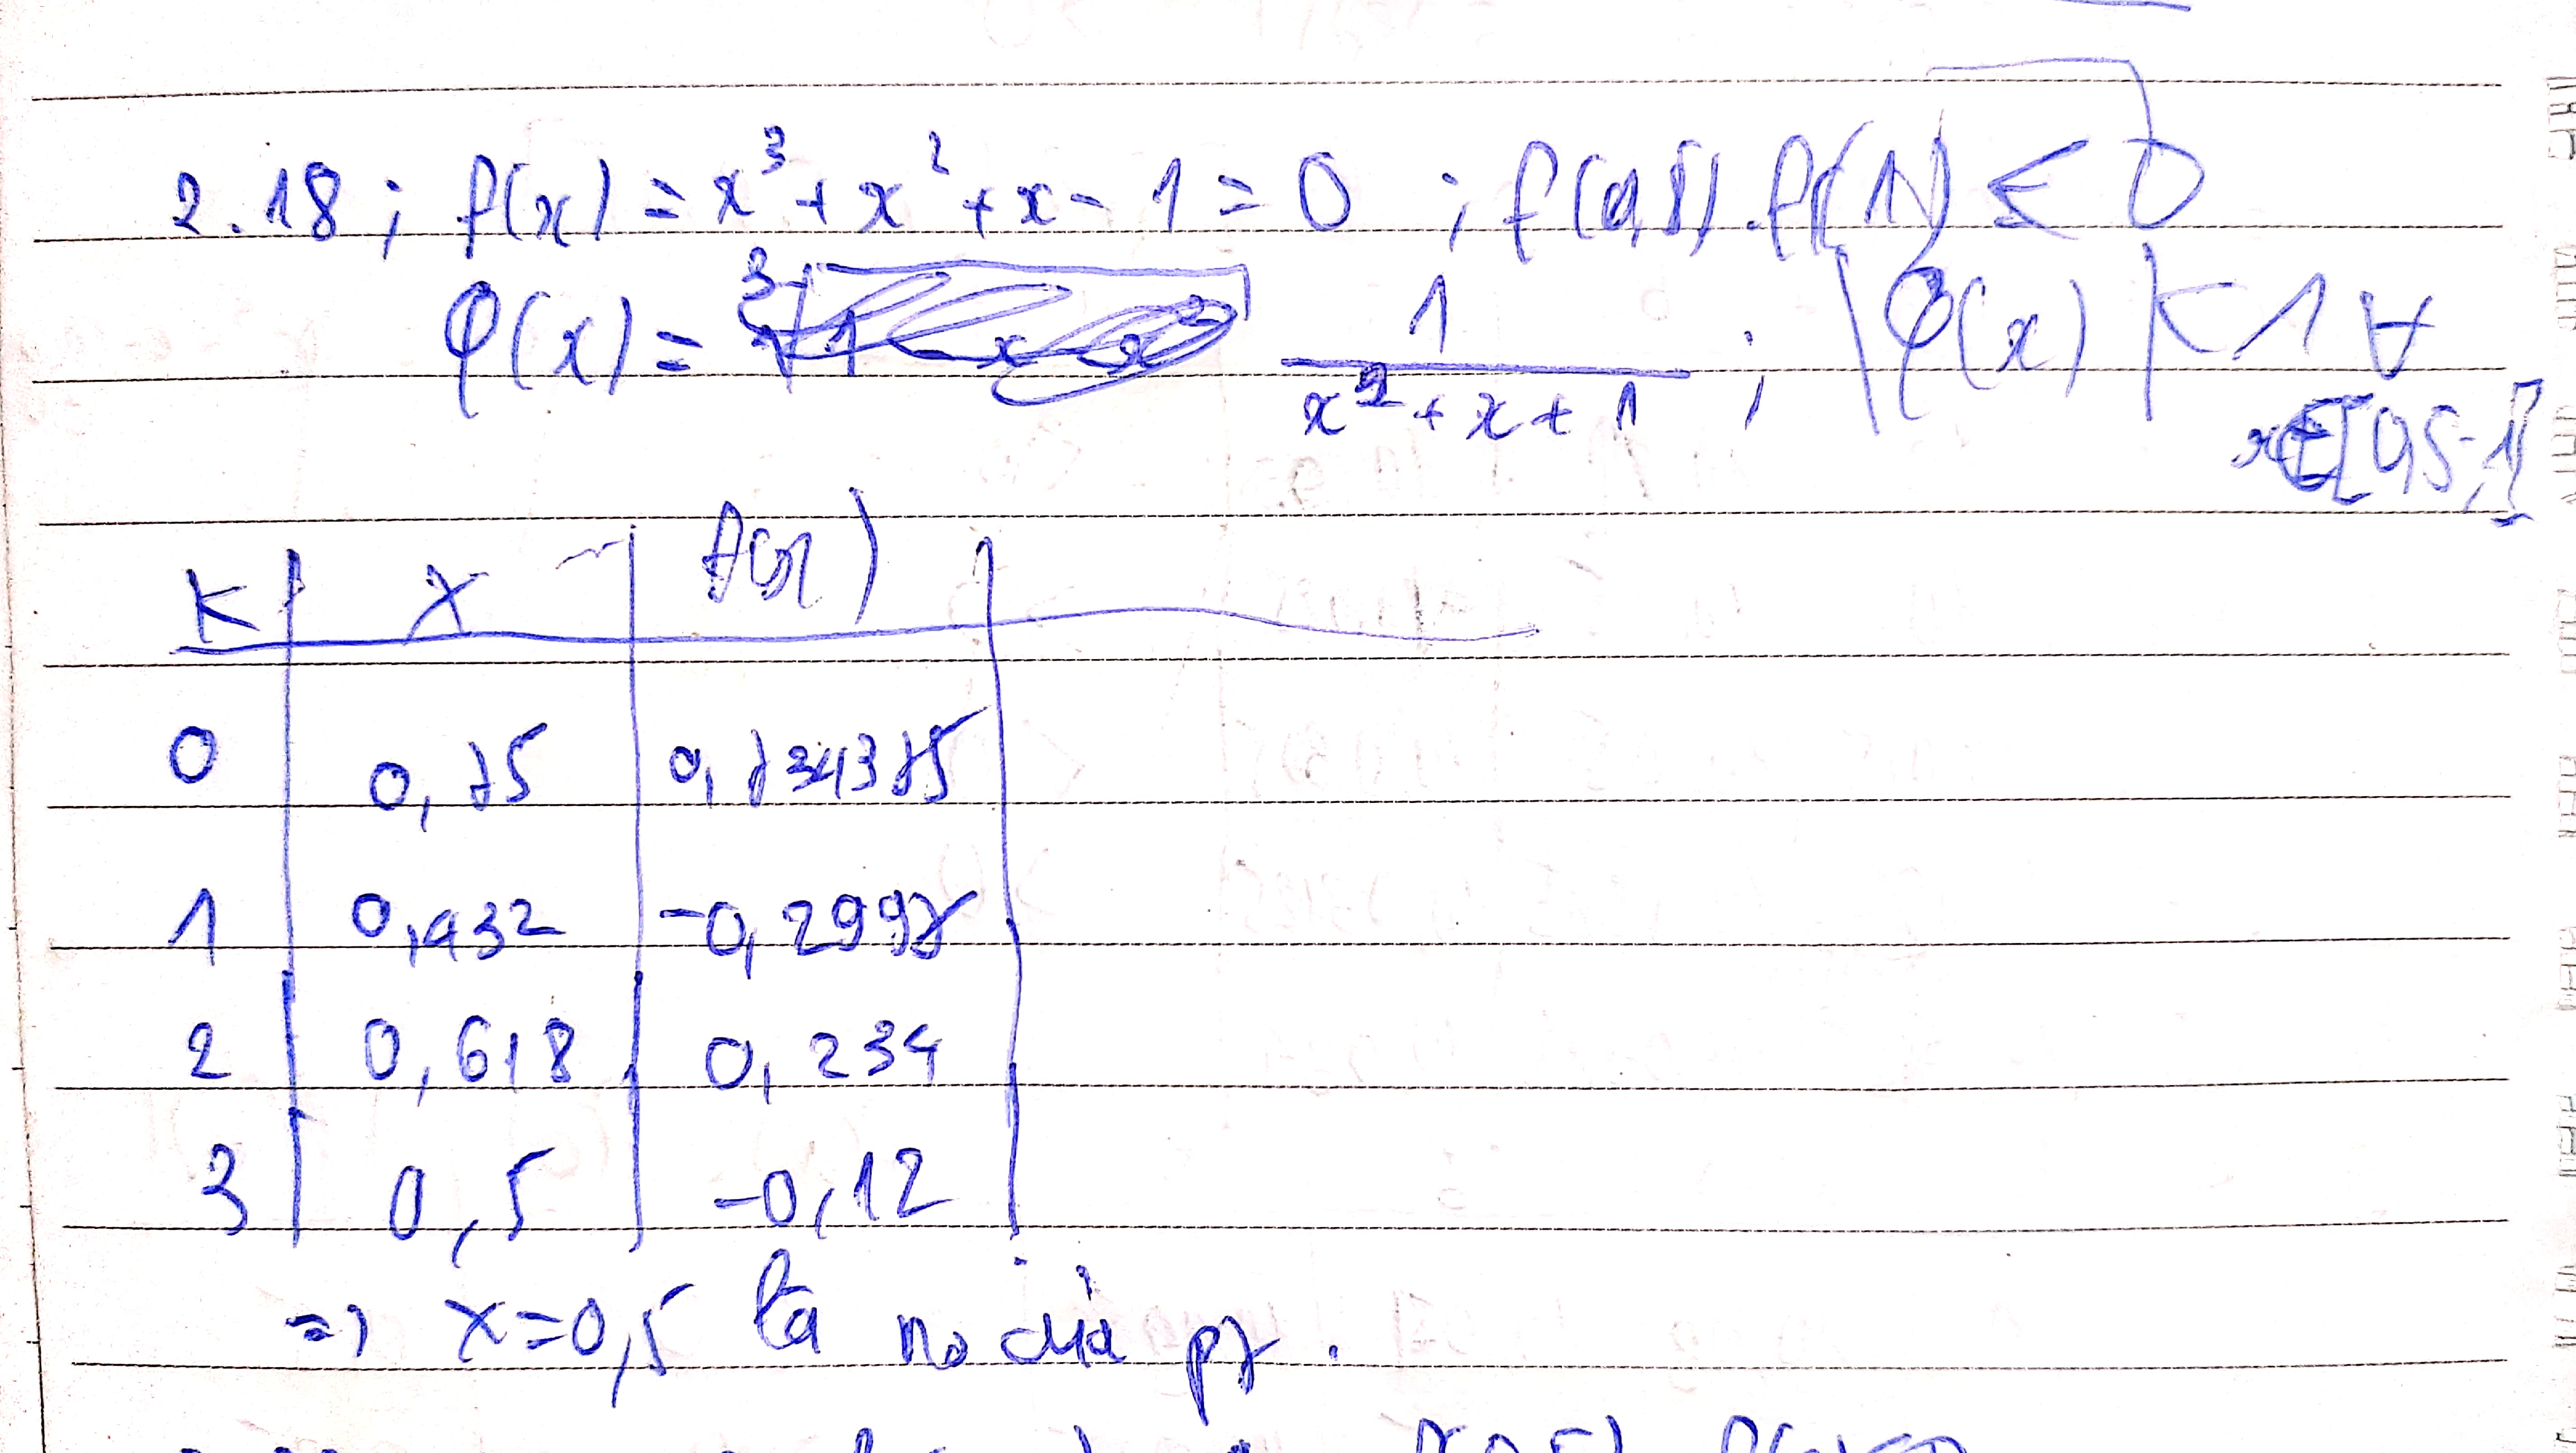 2.18; f(x) = x³ + x² + x - 1 = 0 ; f(0,5).f(1) ≤ 0
φ(x) = 1/(x² + x + 1) ; |φ(x)| < 1 ∀
x∈[0,5;1]
K X f(x)
0 0,75 0,734375
1 0,432 -0,2997
2 0,618 0,234
3 0,5 -0,12
=> x = 0,5 là no của pt.